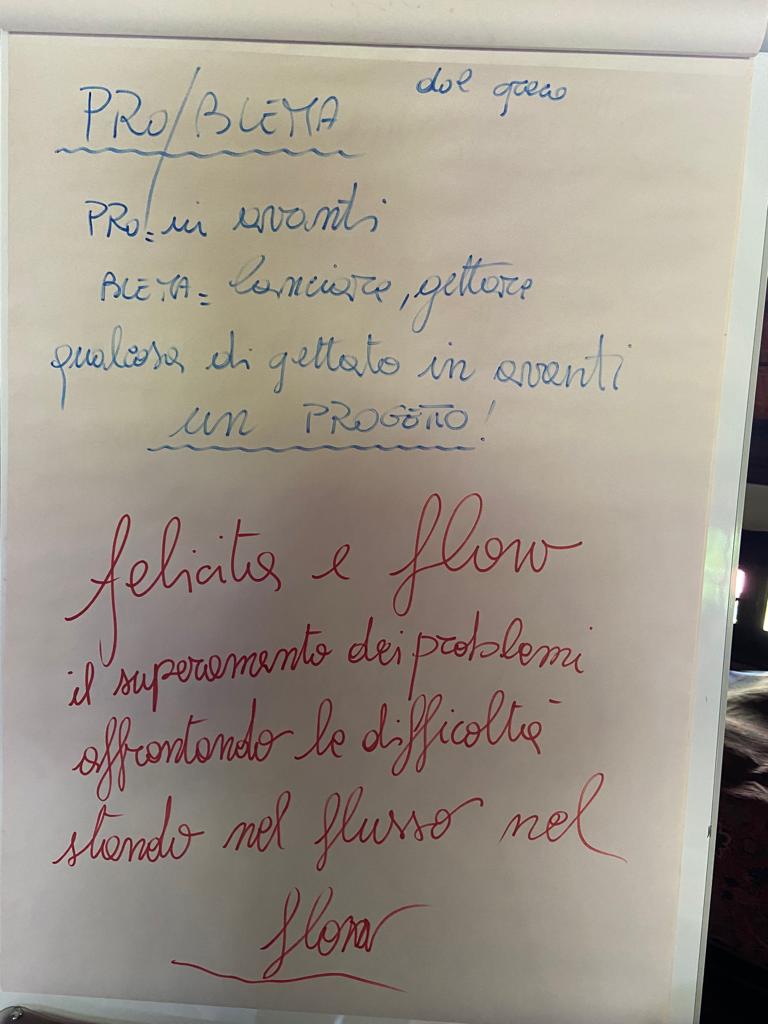 PRO/BLEMA dal greco
PRO = in avanti
BLEMA = lanciare, gettare
qualcosa di gettato in avanti
un PROGETTO!
felicità e flow
il superamento dei problemi
affrontando le difficoltà
stando nel flusso nel
flow